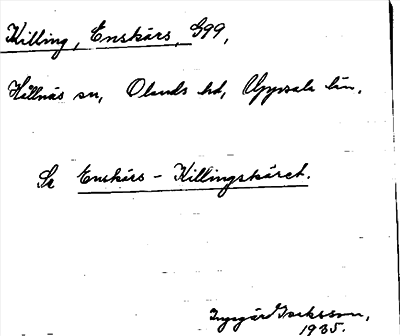 Killing, Enskärs, S99,
Hållnäs sn, Olands hd, Uppsala län.
Se Enskärs - Killingskäret.
Ingegär Isaksson,
1935.